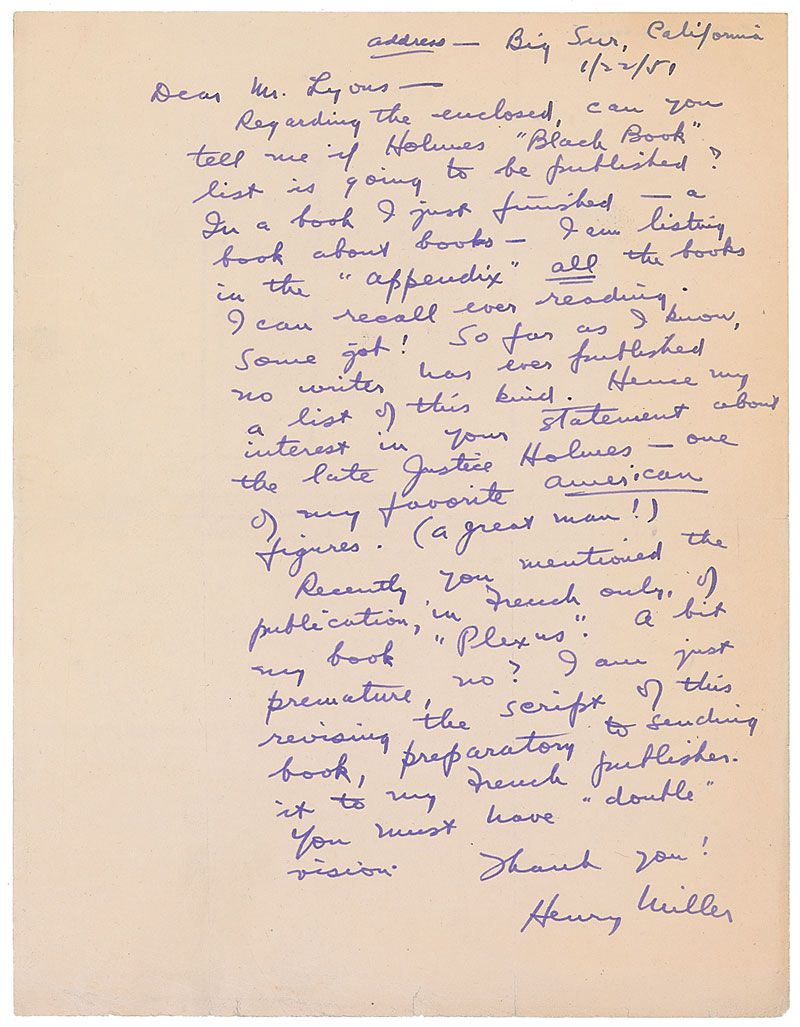 address — Big Sur, California
1/22/51
Dear Mr. Lyons —
Regarding the enclosed, can you
tell me if Holmes "Black Book"
list is going to be published?
In a book I just finished — a
book about books — I am listing
in the "appendix" all the books
I can recall ever reading.
Some job! So far as I know,
no writer has ever published
a list of this kind. Hence my
interest in your statement about
the late Justice Holmes — one
of my favorite American
figures. (A great man!)
Recently you mentioned the
publication, in French only, of
my book "Plexus". A bit
premature, no? I am just
revising the script of this
book, preparatory to sending
it to my French publisher.
You must have "double"
vision. Thank you!
Henry Miller